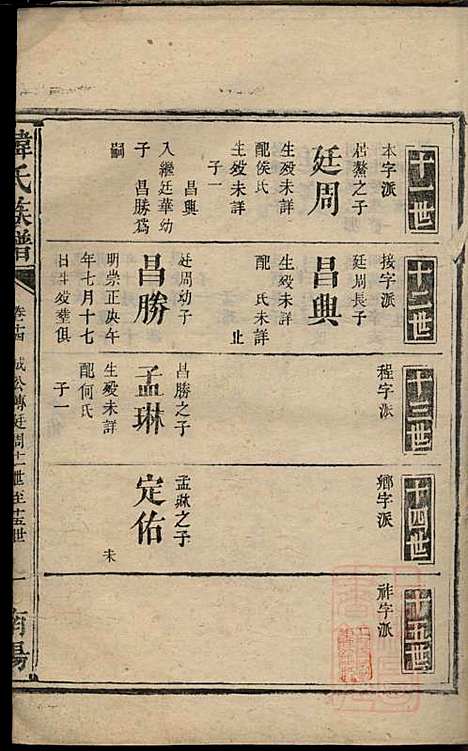 十一世
本字派
居鰲之子
廷周
生歿未詳
配侯氏
生歿未詳
子一
昌興
入繼廷華幼
子 昌勝爲
嗣
十二世
接字派
廷周長子
昌興
生歿未詳
配 氏未詳
止
廷周幼子
昌勝
明崇正庚午
年七月十七
日斗歿塟俱
十三世
程字派
昌勝之子
孟琳
生歿未詳
配何氏
子一
十四世
鄉字派
孟琳之子
定佑
未
十五世
祚字派
韓氏族譜
卷十四
成公傳廷周十一世至十五世
一
南陽